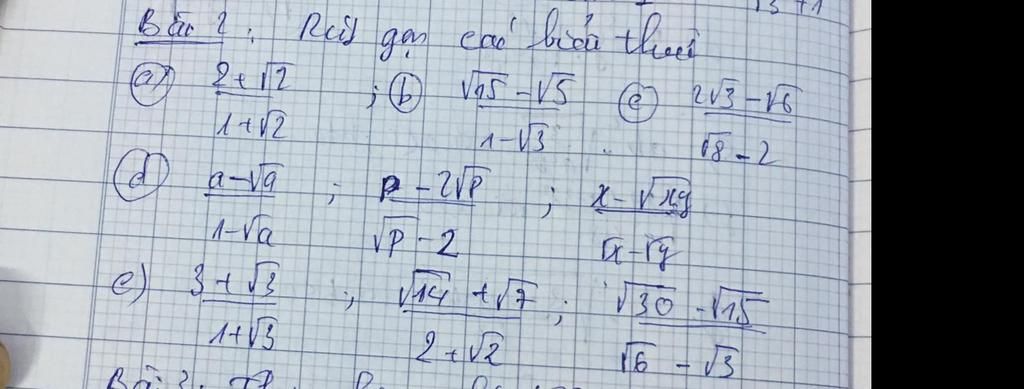 √3 + 1
Bài 2: Rút gọn các biểu thức
a) (2+√2)/(1+√2) ; b) (√15 - √5)/(1-√3) c) (2√3 - √6)/(√8 - 2)
d) (a-√a)/(1-√a) ; (p - 2√p)/(√p - 2) ; (x - √xy)/(√x - √y)
e) (3+√3)/(1+√3) ; (√14 + √7)/(2+√2) ; (√30 - √15)/(√6 - √3)
Bài 3: